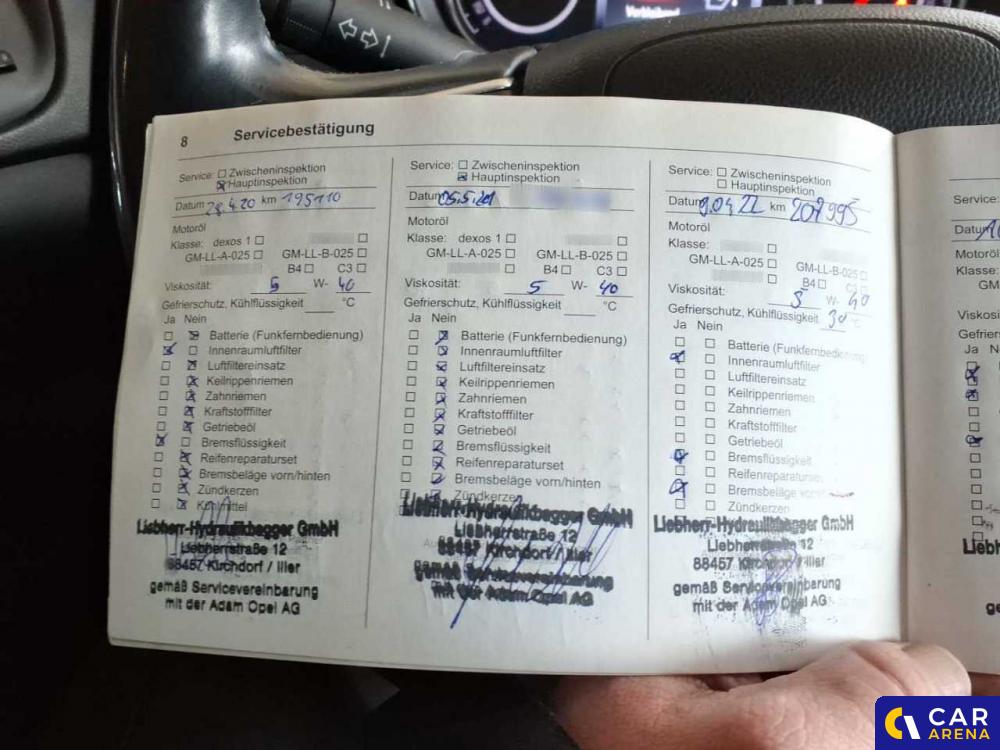 8 Servicebestätigung
Service: Zwischeninspektion
Hauptinspektion
Datum 28.4.20 km 195110
Motoröl
Klasse: dexos 1
GM-LL-A-025 GM-LL-B-025
B4 C3
Viskosität: 5 W- 40
Gefrierschutz, Kühlflüssigkeit °C
Ja Nein
Batterie (Funkfernbedienung)
Innenraumluftfilter
Luftfiltereinsatz
Keilrippenriemen
Zahnriemen
Kraftstofffilter
Getriebeöl
Bremsflüssigkeit
Reifenreparaturset
Bremsbeläge vorn/hinten
Zündkerzen
Liebherr-Hydraulikbagger GmbH
Liebherrstraße 12
88457 Kirchdorf / Iller
gemäß Servicevereinbarung
mit der Adam Opel AG
Service: Zwischeninspektion
Hauptinspektion
Datum 05.5.21
Motoröl
Klasse: dexos 1
GM-LL-A-025 GM-LL-B-025
B4 C3
Viskosität: 5 W- 40
Gefrierschutz, Kühlflüssigkeit °C
Ja Nein
Batterie (Funkfernbedienung)
Innenraumluftfilter
Luftfiltereinsatz
Keilrippenriemen
Zahnriemen
Kraftstofffilter
Getriebeöl
Bremsflüssigkeit
Reifenreparaturset
Bremsbeläge vorn/hinten
Zündkerzen
Liebherr-Hydraulikbagger GmbH
Liebherrstraße 12
88457 Kirchdorf / Iller
gemäß Servicevereinbarung
mit der Adam Opel AG
Service: Zwischeninspektion
Hauptinspektion
Datum 9.04.22 km 207995
Motoröl
Klasse:
GM-LL-A-025 GM-LL-B-025
B4 C3
Viskosität: 5 W- 40
Gefrierschutz, Kühlflüssigkeit 30 °C
Ja Nein
Batterie (Funkfernbedienung)
Innenraumluftfilter
Luftfiltereinsatz
Keilrippenriemen
Zahnriemen
Kraftstofffilter
Getriebeöl
Bremsflüssigkeit
Reifenreparaturset
Bremsbeläge
Zündkerzen
Liebherr-Hydraulikbagger GmbH
Liebherrstraße 12
88457 Kirchdorf / Iller
gemäß Servicevereinbarung
mit der Adam Opel AG
Service:
Motoröl
Klasse:
GM
Gefriers
Ja
CAR
ARENA